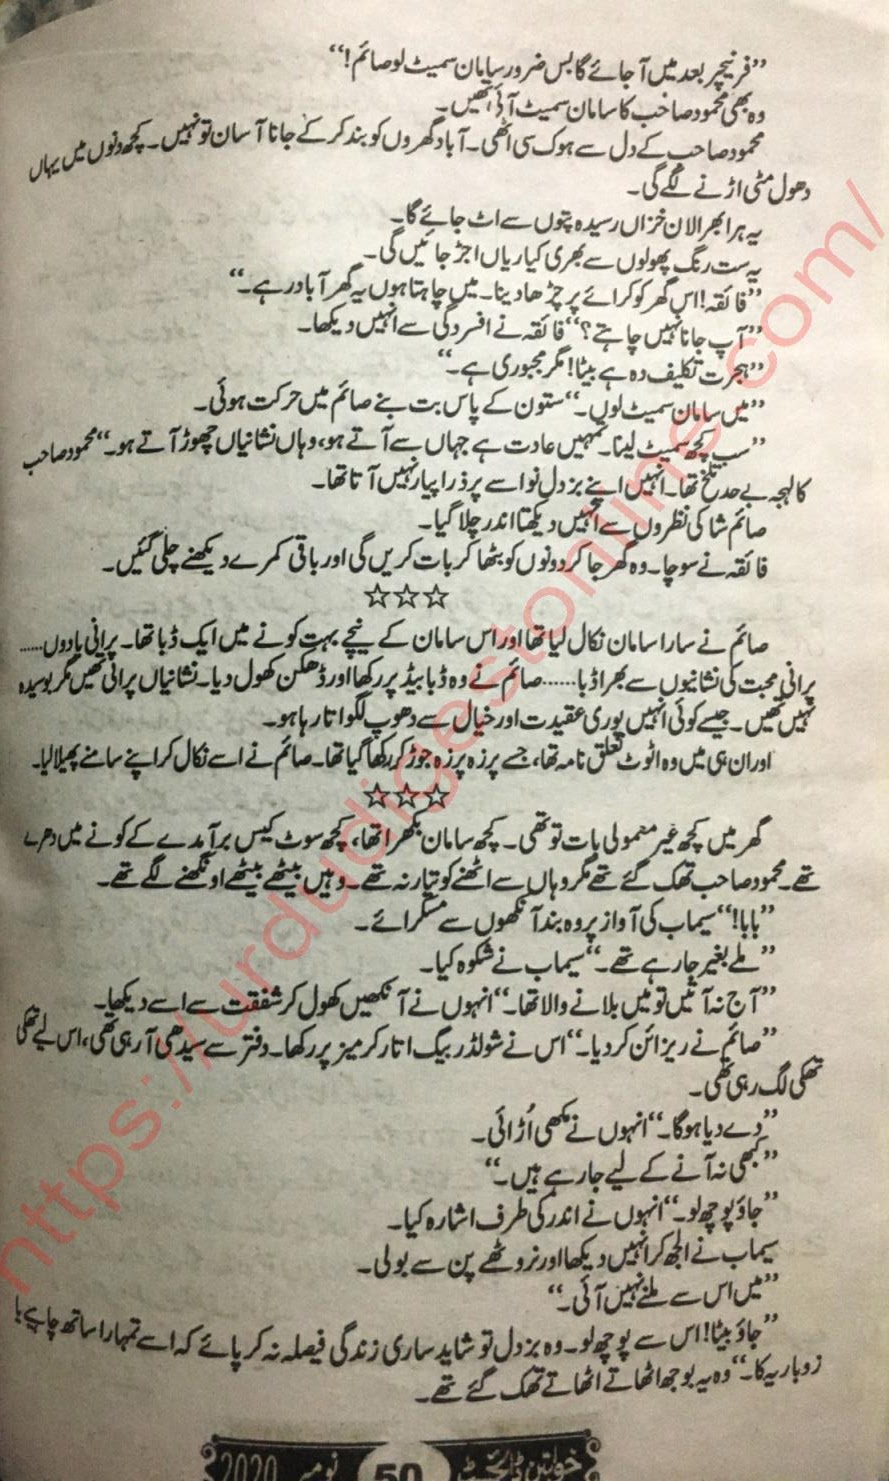 ”فرنیچر بعد میں آ جائے گا بس ضرور سامان سمیٹ لو صائم!“
وہ بھی محمود صاحب کا سامان سمیٹ آئی تھیں۔
محمود صاحب کے دل سے ہوک سی اٹھی۔ آباد گھروں کو بند کر کے جانا آسان تو نہیں۔ کچھ دنوں میں یہاں
دھول مٹی اڑنے لگے گی۔
یہ ہرا بھرا لان خزاں رسیدہ پتوں سے اٹ جائے گا۔
یہ ست رنگ پھولوں سے بھری کیاریاں اجڑ جائیں گی۔
”فائقہ! اس گھر کو کرائے پر چڑھا دینا۔ میں چاہتا ہوں یہ گھر آباد رہے۔“
”آپ جانا نہیں چاہتے؟“ فائقہ نے افسردگی سے انہیں دیکھا۔
”ہجرت تکلیف دہ ہے بیٹا! مگر مجبوری ہے۔“
”میں سامان سمیٹ لوں۔“ ستون کے پاس بت بنے صائم میں حرکت ہوئی۔
”سب کچھ سمیٹ لینا۔ تمہیں عادت ہے جہاں سے آتے ہو، وہاں نشانیاں چھوڑ آتے ہو۔“ محمود صاحب
کا لہجہ بے حد تلخ تھا۔ انہیں اپنے بزدل نواسے پر ذرا پیار نہیں آتا تھا۔
صائم شاکی نظروں سے انہیں دیکھتا اندر چلا گیا۔
فائقہ نے سوچا۔ وہ گھر جا کر دونوں کو بٹھا کر بات کریں گی اور باقی کمرے دیکھنے چلی گئیں۔
☆☆☆
صائم نے سارا سامان نکال لیا تھا اور اس سامان کے نیچے بہت کونے میں ایک ڈبا تھا۔ پرانی یادوں......
پرانی محبت کی نشانیوں سے بھرا ڈبا...... صائم نے وہ ڈبا بیڈ پر رکھا اور ڈھکن کھول دیا۔ نشانیاں پرانی تھیں مگر بوسیدہ
نہیں تھیں۔ جیسے کوئی انہیں پوری عقیدت اور خیال سے دھوپ لگواتا رہا ہو۔
اور ان ہی میں وہ اٹوٹ تعلق نامہ تھا، جسے پرزہ پرزہ جوڑ کر رکھا گیا تھا۔ صائم نے اسے نکال کر اپنے سامنے پھیلا لیا۔
☆☆☆
گھر میں کچھ غیر معمولی بات تو تھی۔ کچھ سامان بکھرا تھا، کچھ سوٹ کیس برآمدے کے کونے میں دھرے
تھے۔ محمود صاحب تھک گئے تھے مگر وہاں سے اٹھنے کو تیار نہ تھے۔ وہیں بیٹھے بیٹھے اونگھنے لگے تھے۔
”بابا!“ سیماب کی آواز پر وہ بند آنکھوں سے مسکرائے۔
”ملے بغیر جا رہے تھے۔“ سیماب نے شکوہ کیا۔
”آج نہ آتیں تو میں بلانے والا تھا۔“ انہوں نے آنکھیں کھول کر شفقت سے اسے دیکھا۔
”صائم نے ریزائن کر دیا۔“ اس نے شولڈر بیگ اتار کر میز پر رکھا۔ دفتر سے سیدھی آ رہی تھی، اس لیے تھکی
تھکی لگ رہی تھی۔
”دے دیا ہوگا۔“ انہوں نے مکھی اُڑائی۔
”کبھی نہ آنے کے لیے جا رہے ہیں۔“
”جاؤ پوچھ لو۔“ انہوں نے اندر کی طرف اشارہ کیا۔
سیماب نے الجھ کر انہیں دیکھا اور نروٹھے پن سے بولی۔
”میں اس سے ملنے نہیں آئی۔“
”جاؤ بیٹا! اس سے پوچھ لو۔ وہ بزدل تو شاید ساری زندگی فیصلہ نہ کر پائے کہ اسے تمہارا ساتھ چاہیے یا
زوباریہ کا۔“ وہ یہ بوجھ اٹھاتے اٹھاتے تھک گئے تھے۔
خواتین ڈائجسٹ 50 نومبر 2020
https://urdudigestonline.com/